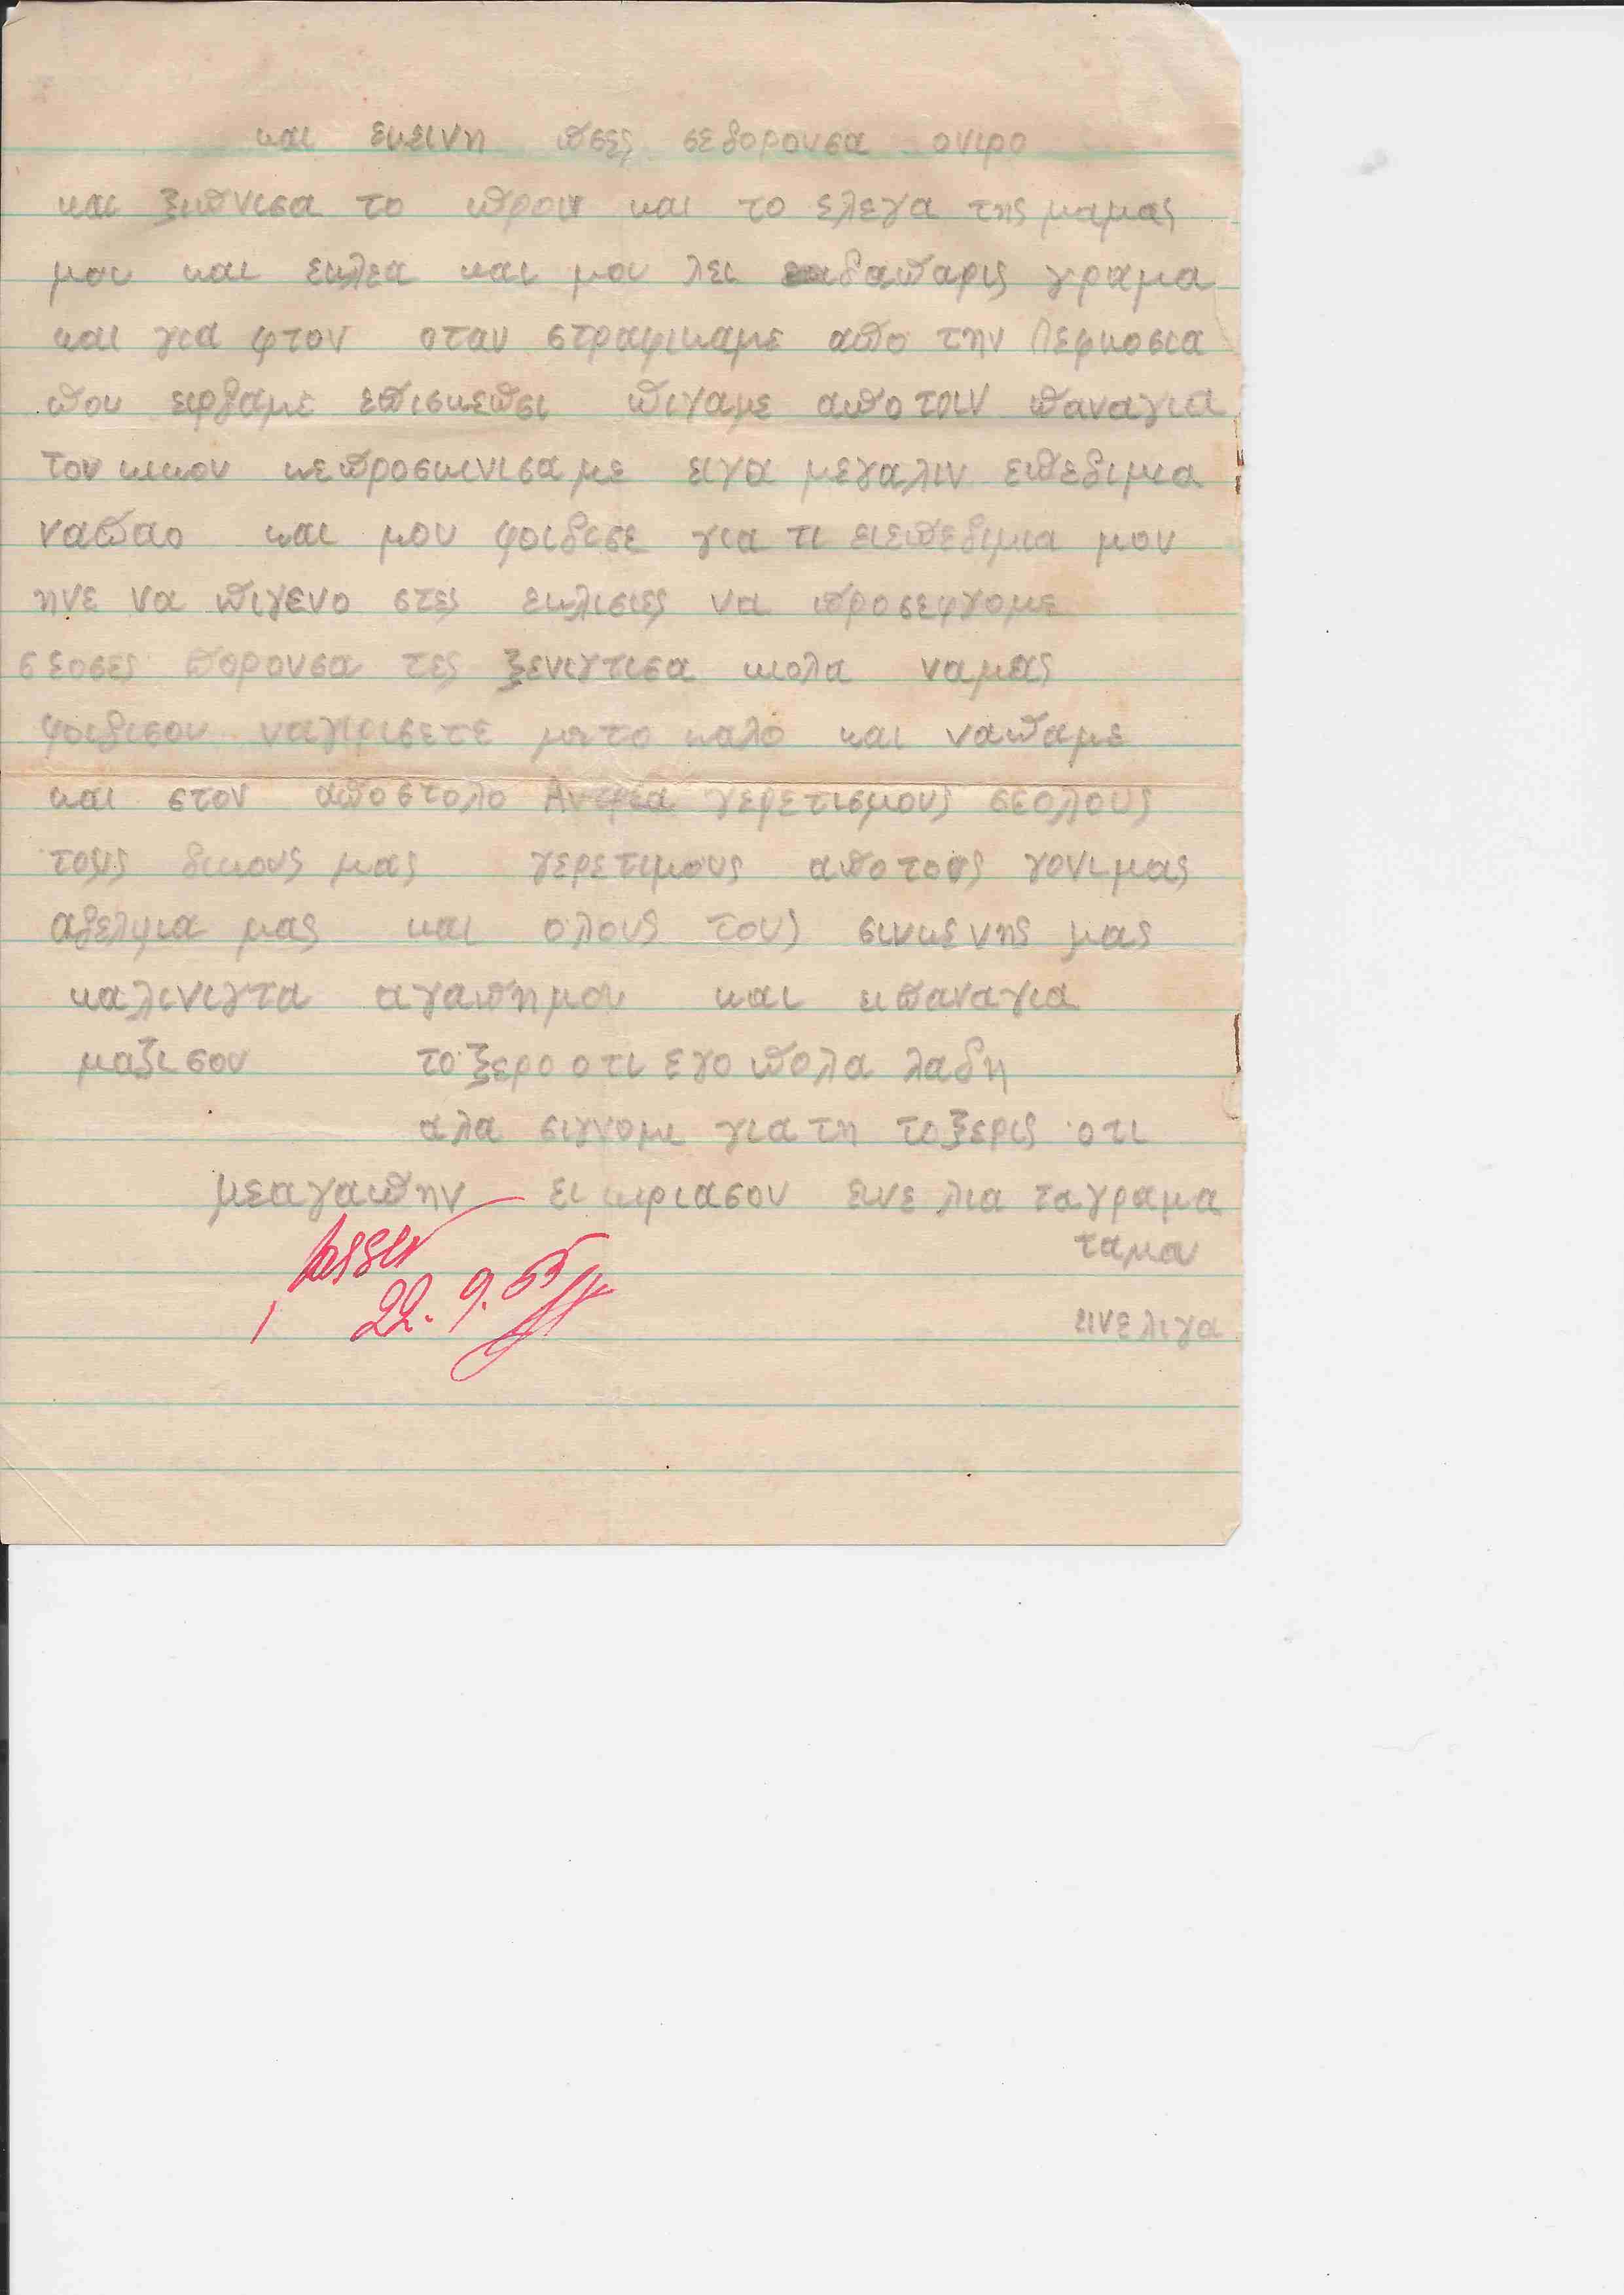 και εκεινη πσες σεθορουσα ονιρο
και ξιπνισα το προι και το ελεγα της μαμας
μου και εκλεα και μου λει θαπαρις γραμα
και για φτον οταν στραφικαμε απο την Λεφκοσια
που ειρθαμε επισκεπσι πιγαμε απο τοιν παναγια
του κικου κεπροσκινισαμε ειχα μεγαλιν επεθιμια
ναπαο και μου φοιθισε για τι ειεπεθιμια μου
ηνε να πιγενο στες εκλισιες να προσεφχομε
σεοσες πορουσα τες ξενιχτισα κιολα ναμας
φοιθισου ναγιρισετε με το καλο και ναπαμε
και στον αποστολο Αντρεα χερετισμους σεολους
τους δικους μας χερετιμους απο τους γονιμας
αδελφια μας και ολους τους σινκενης μας
καλινιχτα αγαπημου και ιπαναγια
μαζισου το ξερο οτι εχο πολα λαθη
αλα σιγνομι για τη τοξερις οτι
μεαγαπην ει κιριασου εινε λια ταγραμα
ταμου
ινελιγα
Passed
22. 9. 55